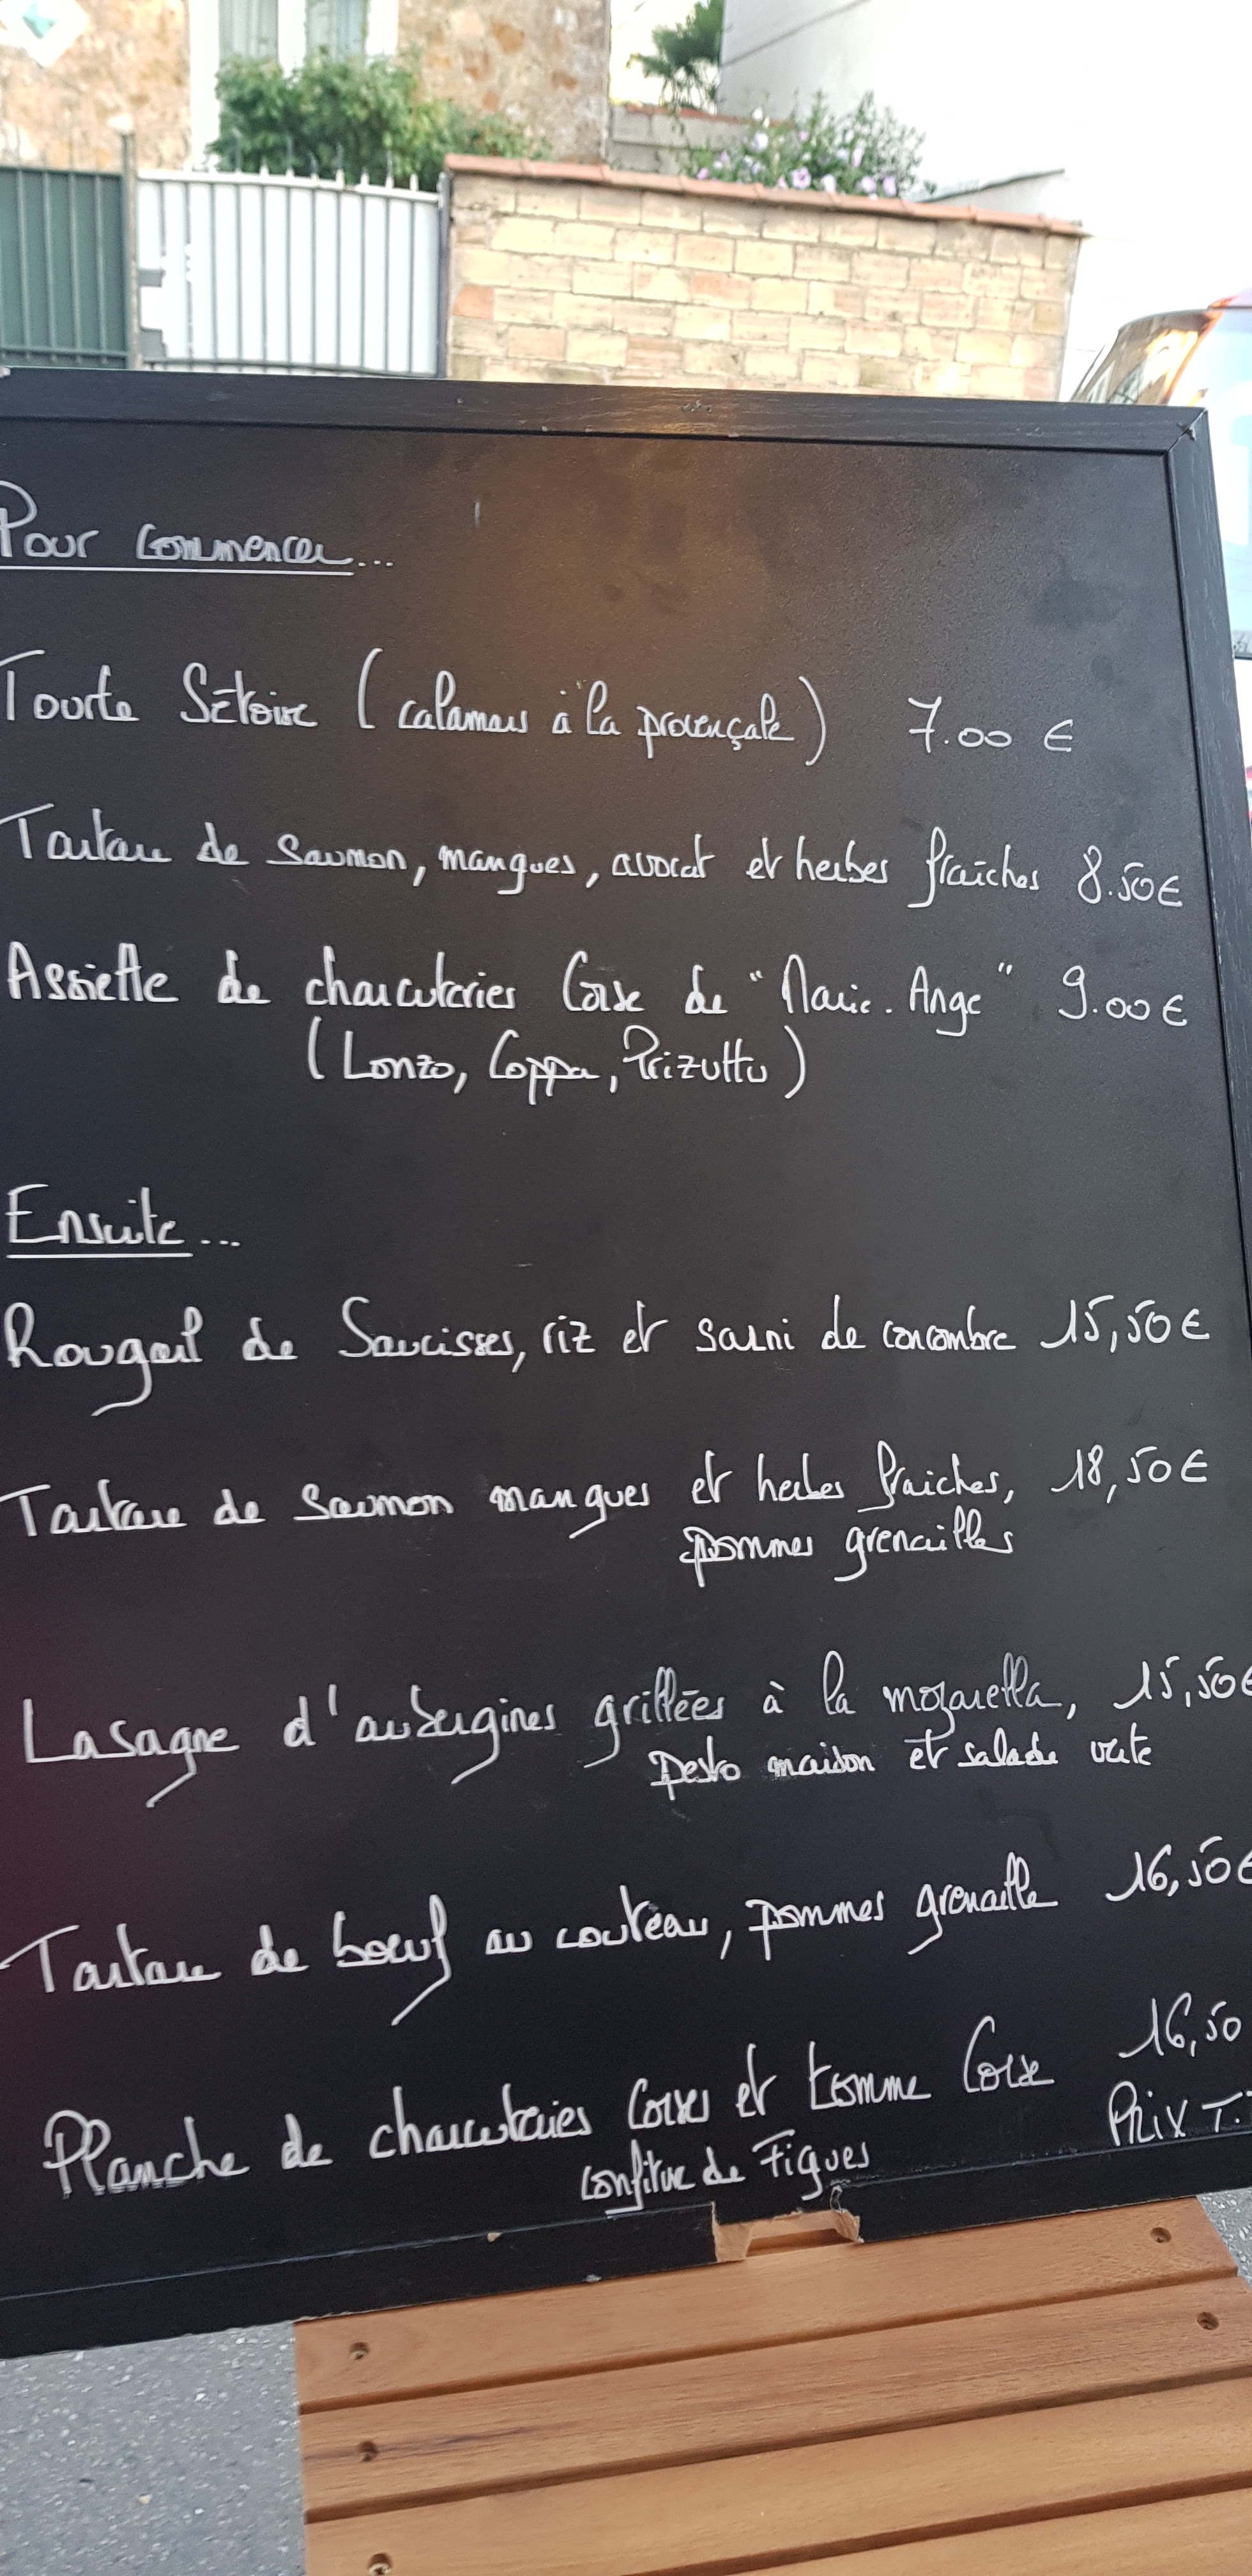 Pour commencer...
Tourte Sétoise (calamars à la provençale) 7.00 €
Tartare de saumon, mangues, avocat et herbes fraîches 8.50€
Assiette de charcuteries Corse de "Marie.Ange" 9.00€
(Lonzo, Coppa, Prizuttu)
Ensuite...
Rougail de Saucisses, riz et satni de concombre 15,50€
Tartare de saumon mangues et herbes fraiches, 18,50€
pommes grenailles
Lasagne d'aubergines grillées à la mozarella, 15,50€
Pesto maison et salade verte
Tartare de boeuf au couteau, pommes grenaille 16,50€
Planche de charcuteries Corses et tomme Corse 16,50
confiture de Figues
Prix T.